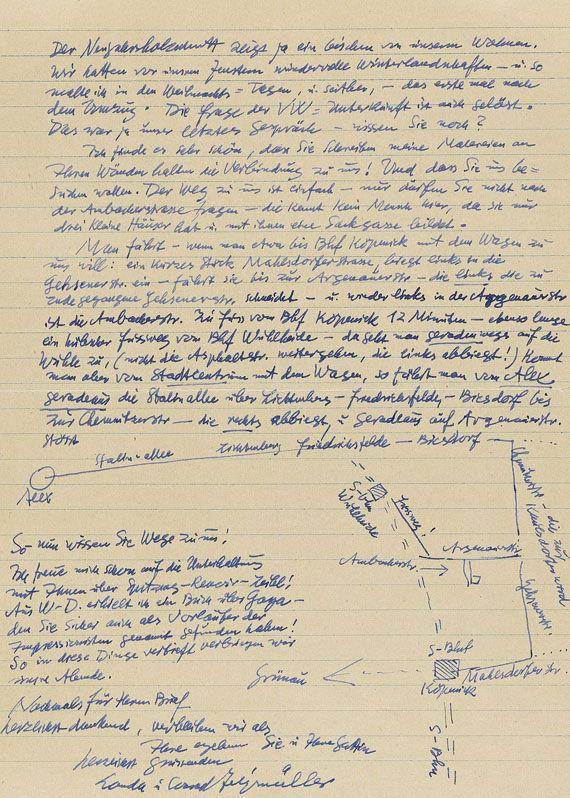 Der Neujahrsholzschnitt zeigt ja ein bischen von unserem Wohnen.
Wir hatten vor unsern Fenstern wundervolle Winterlandschaften – u. so
malte ich in den Weihnachts= Tagen, u. seither, – das erste mal nach
dem Umzug. Die Frage der VW= Unterkunft ist auch gelöst.
Das war ja unser letztes Gespräch – wissen Sie noch?
Ich finde es sehr schön, dass Sie schreiben meine Malereien an
Ihren Wänden halten die Verbindung zu uns! Und dass Sie uns be=
suchen wollen. Der Weg zu uns ist einfach – nur dürfen Sie nicht nach
der Ambacherstrasse fragen – die kennt kein Mensch hier, da sie nur
drei kleine Häuser hat u. mit ihnen eine Sackgasse bildet.
Man fährt – wenn man etwa bis Bhf Köpenick mit dem Wagen zu
uns will: ein kurzes Stück Mahlsdorferstrasse, biegt links in die
Gehsenerstr. ein – fährt sie bis zur Argenauerstr – die links die zu
Ende gegangene Gehsenerstr. schneidet – u. wieder links in der Argenauerstr
ist die Ambacherstr. Zu Fuss vom Bhf Köpenick 12 Minuten – ebenso lange
ein hübscher Fussweg vom Bhf Wuhlheide – da geht man geradenwegs auf die
Wuhle zu, (nicht die Asphaltstr. weitergehen, die links abbiegt!) Kommt
man aber vom Stadtcentrum mit dem Wagen, so fährt man vom Alex
geradeaus die Stalinallee über Lichtenberg – Friedrichsfelde – Biesdorf bis
zur Chemnitzerstr – die rechts abbiegt, u geradeaus auf Argenauerstr.
stösst
Stalin-allee Lichtenberg Friedrichsfelde – Biesdorf
Alex
S-Bhn
Wuhlheide
Fussweg!
Chemnitzerstr. – die zur
Kaulsdorfer wird
Ambacherstr.
Argenauerstr
Gehsenerstr.
S-Bhf
Köpenick
Mahlsdorferstr.
Grünau
S-Bhn
So nun wissen Sie Wege zu uns!
Ich freue mich schon auf die Unterhaltung
mit Ihnen über
Aus W-D. erhielt ich ein Buch über Goya –
den Sie sicher auch als Vorläufer der
Impressionisten genannt gefunden haben!
So in diese Dinge vertieft verbringen wir
unsere Abende.
Nochmals für Ihren Brief
herzlichst dankend, verbleiben wir als
Ihre ergebenen Sie u Ihren Gatten
herzlichst Grüssenden
u Conrad Felixmüller